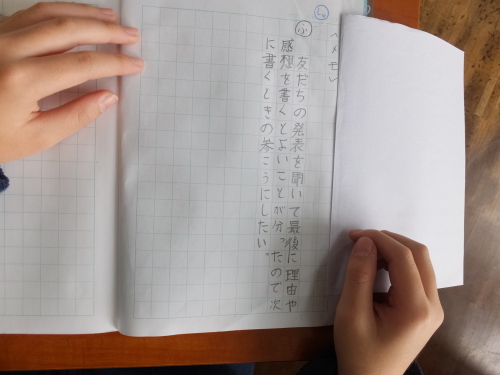 メモし
ふ
友だちの発表を聞いて最後に理由や
感想を書くとよいことが分ったので次
に書くときの参こうにしたい。